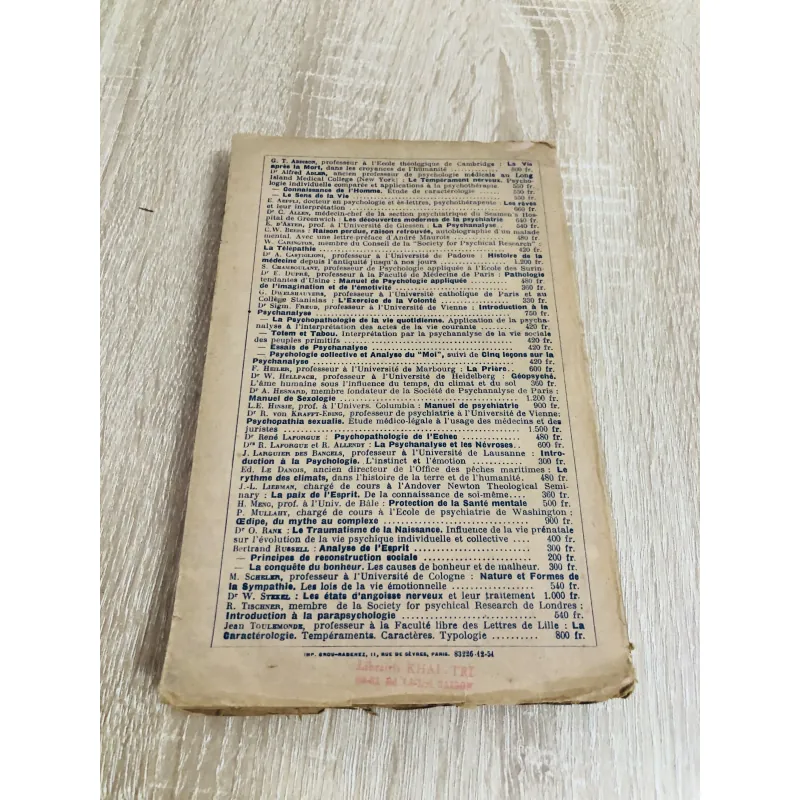 professeur à l'Ecole théologique de Cambridge : La Vie
après la Mort, dans les croyances de l'humanité
Dr Alfred ADLER, ancien professeur de psychologie médicale au Long
Island Medical College (New York) : Le Tempérament nerveux. Psycho-
logie individuelle comparée et applications à la psychothérapie. 550 fr.
— Connaissance de l'Homme. Étude de caractérologie 550 fr.
— Le Sens de la Vie 550 fr.
E. AEPPLI, docteur en psychologie et ès-lettres, psychothérapeute : Les rêves
et leur interprétation 660 fr.
Dr C. ALLEN, médecin-chef de la section psychiatrique du Seamen's Hos-
pital de Greenwich : Les découvertes modernes de la psychiatrie 640 fr.
E. D'ASTER, prof. à l'Université de Giessen : La Psychanalyse 540 fr.
C.W. BEERS : Raison perdue, raison retrouvée, autobiographie d'un malade
mental. Avec une lettre-préface d'André Maurois 480 fr.
W. CARINGTON, membre du Conseil de la "Society for Psychical Research" :
La Télépathie 420 fr.
Dr A. CASTIGLIONI, professeur à l'Université de Padoue : Histoire de la
médecine depuis l'antiquité jusqu'à nos jours 1.200 fr.
S. CHAMBOULANT, professeur de Psychologie appliquée à l'Ecole des Surin-
tendantes d'Usine : Manuel de Psychologie appliquée 480 fr.
Dr E. DUPRÉ, professeur à la Faculté de Médecine de Paris : Pathologie
de l'imagination et de l'émotivité 360 fr.
G. DWELSHAUVERS, professeur à l'Université catholique de Paris et au
Collège Stanislas : L'Exercice de la Volonté 230 fr.
Dr Sigm. FREUD, professeur à l'Université de Vienne : Introduction à la
Psychanalyse 750 fr.
— La Psychopathologie de la vie quotidienne. Application de la psycha-
nalyse à l'interprétation des actes de la vie courante 420 fr.
— Totem et Tabou. Interprétation par la psychanalyse de la vie sociale
des peuples primitifs 420 fr.
— Essais de Psychanalyse 420 fr.
— Psychologie collective et Analyse du "Moi", suivi de Cinq leçons sur la
Psychanalyse 420 fr.
F. HEILER, professeur à l'Université de Marbourg : La Prière 600 fr.
Dr W. HELLPACH, professeur à l'Université de Heidelberg : Géopsyché.
L'âme humaine sous l'influence du temps, du climat et du sol 360 fr.
Dr A. HESNARD, membre fondateur de la Société de Psychanalyse de Paris :
Manuel de Sexologie 1.200 fr.
L.E. HINSIE, prof. à l'Univers. Columbia : Manuel de psychiatrie 900 fr.
Dr R. von KRAFFT-EBING, professeur de psychiatrie à l'Université de Vienne:
Psychopathia sexualis. Étude médico-légale à l'usage des médecins et des
juristes 1.500 fr.
Dr René LAFORGUE : Psychopathologie de l'Echec 480 fr.
Drs R. LAFORGUE et R. ALLENDY : La Psychanalyse et les Névroses. 600 fr.
J. LARGUIER DES BANCELS, professeur à l'Université de Lausanne : Intro-
duction à la Psychologie. L'instinct et l'émotion 300 fr.
Ed. LE DANOIS, ancien directeur de l'Office des pêches maritimes : Le
rythme des climats, dans l'histoire de la terre et de l'humanité. 480 fr.
J.-L. LIEBMAN, chargé de cours à l'Andover Newton Theological Semi-
nary : La paix de l'Esprit. De la connaissance de soi-même 360 fr.
H. MENG, prof. à l'Univ. de Bâle : Protection de la Santé mentale 500 fr.
P. MULLAHY, chargé de cours à l'Ecole de psychiatrie de Washington :
Œdipe, du mythe au complexe 900 fr.
Dr O. RANK : Le Traumatisme de la Naissance. Influence de la vie prénatale
sur l'évolution de la vie psychique individuelle et collective 400 fr.
Bertrand RUSSELL : Analyse de l'Esprit 300 fr.
— Principes de reconstruction sociale 200 fr.
— La conquête du bonheur. Les causes de bonheur et de malheur. 300 fr.
M. SCHELER, professeur à l'Université de Cologne : Nature et Formes de
la Sympathie. Les lois de la vie émotionnelle 540 fr.
Dr W. STEKEL : Les états d'angoisse nerveux et leur traitement 1.000 fr.
R. TISCHNER, membre de la Society for psychical Research de Londres :
Introduction à la parapsychologie 540 fr.
Jean TOULEMONDE, professeur à la Faculté libre des Lettres de Lille : La
Caractérologie. Tempéraments. Caractères. Typologie 800 fr.
IMP. CROU-RADENEZ, 11, RUE DE SÈVRES, PARIS. 63226-12-54
Librairie KHAI-TRI